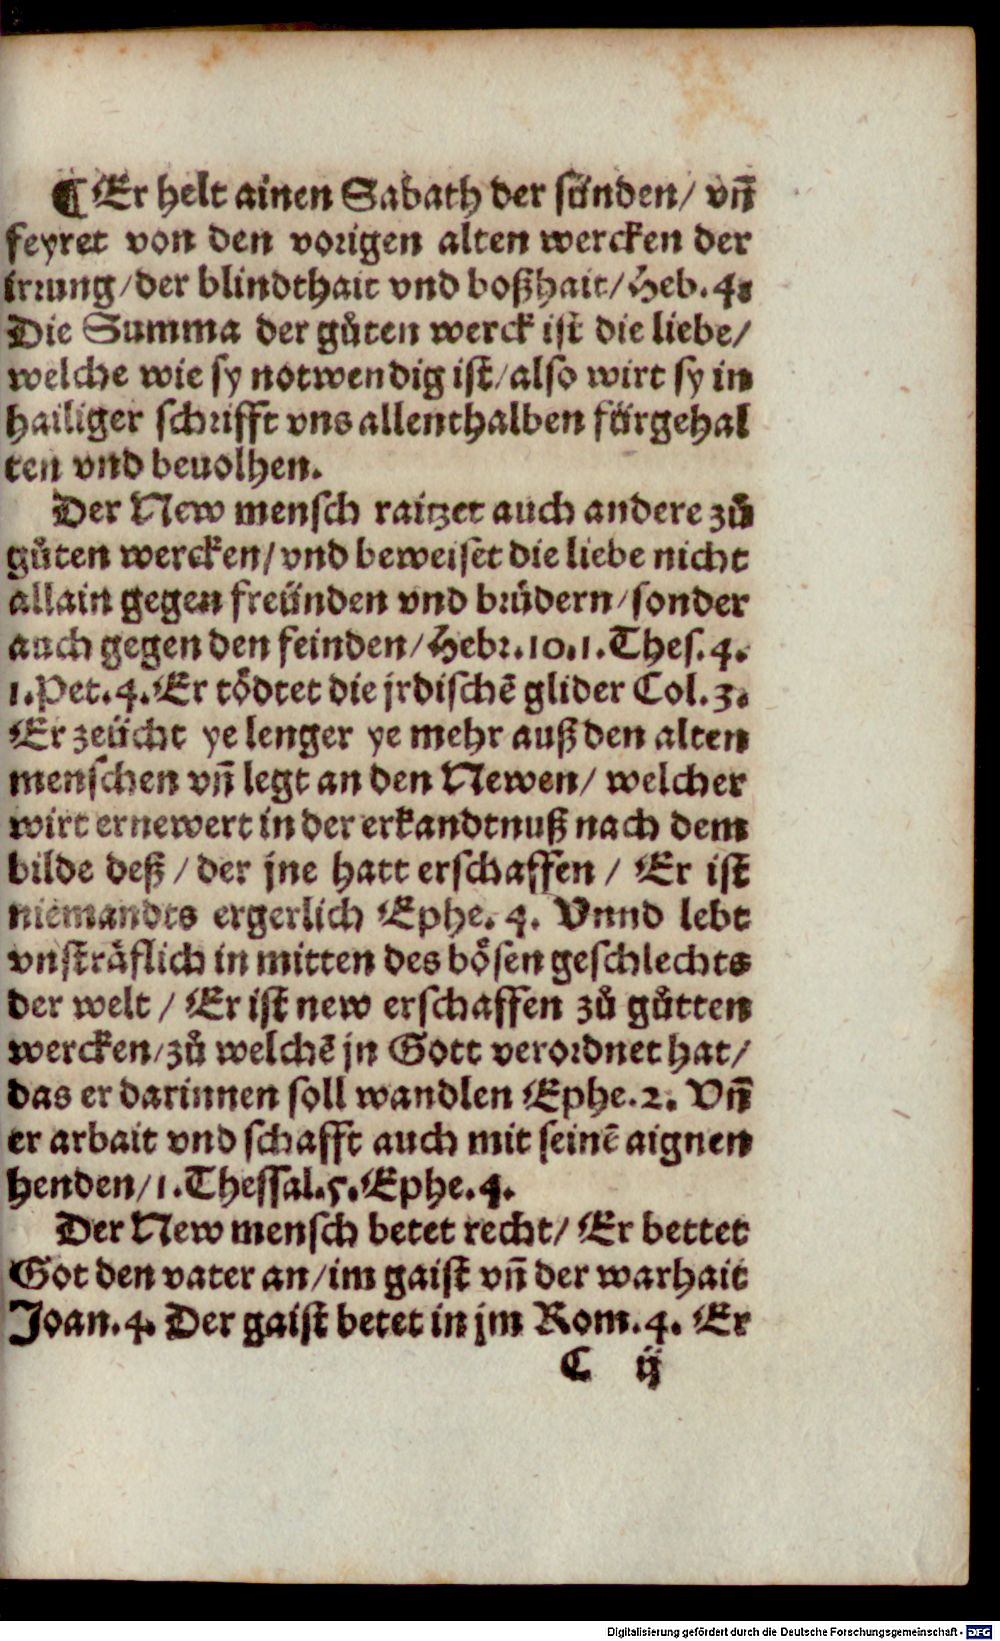 ¶ Er helt ainen Sabath der sünden/ vñ
feyret von den vorigen alten wercken der
irrung/der blindthait vnd boßhait/Heb.4:
Die Summa der gůten werck ist die liebe/
welche wie sy notwendig ist/also wirt sy in
hailiger schrifft vns allenthalben fürgehal
ten vnd beuolhen.
Der New mensch raitzet auch andere zů
gůten wercken/vnd beweiset die liebe nicht
allain gegen freünden vnd brüdern/sonder
auch gegen den feinden/Hebr.10.1.Thes.4.
1.Pet.4.Er tödtet die jrdischē glider Col.3.
Er zeücht ye lenger ye mehr auß den alten
menschen vñ legt an den Newen/ welcher
wirt ernewert in der erkandtnuß nach dem
bilde deß / der jne hatt erschaffen / Er ist
niemandts ergerlich Ephe. 4. Vnnd lebt
vnsträflich in mitten des bösen geschlechts
der welt / Er ist new erschaffen zů gůtten
wercken/zů welchē jn Gott verordnet hat/
das er darinnen soll wandlen Ephe.2. Vñ
er arbait vnd schafft auch mit seinē aignen
henden/1.Thessal.5.Ephe.4.
Der New mensch betet recht/ Er bettet
Got den vater an/im gaist vñ der warhait
Joan.4. Der gaist betet in jm Rom.4. Er
C ij
Digitalisierung gefördert durch die Deutsche Forschungsgemeinschaft - DFG